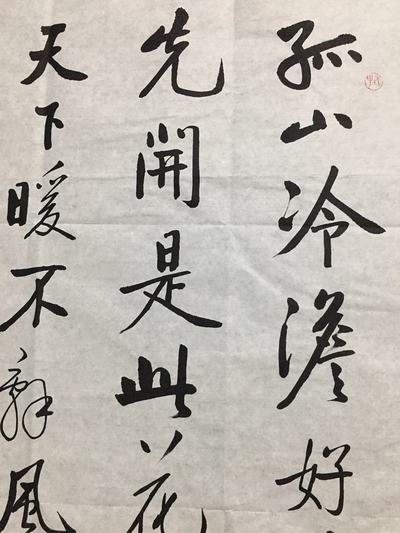 孤山冷澹好
先開是此花
天下暖不辭風